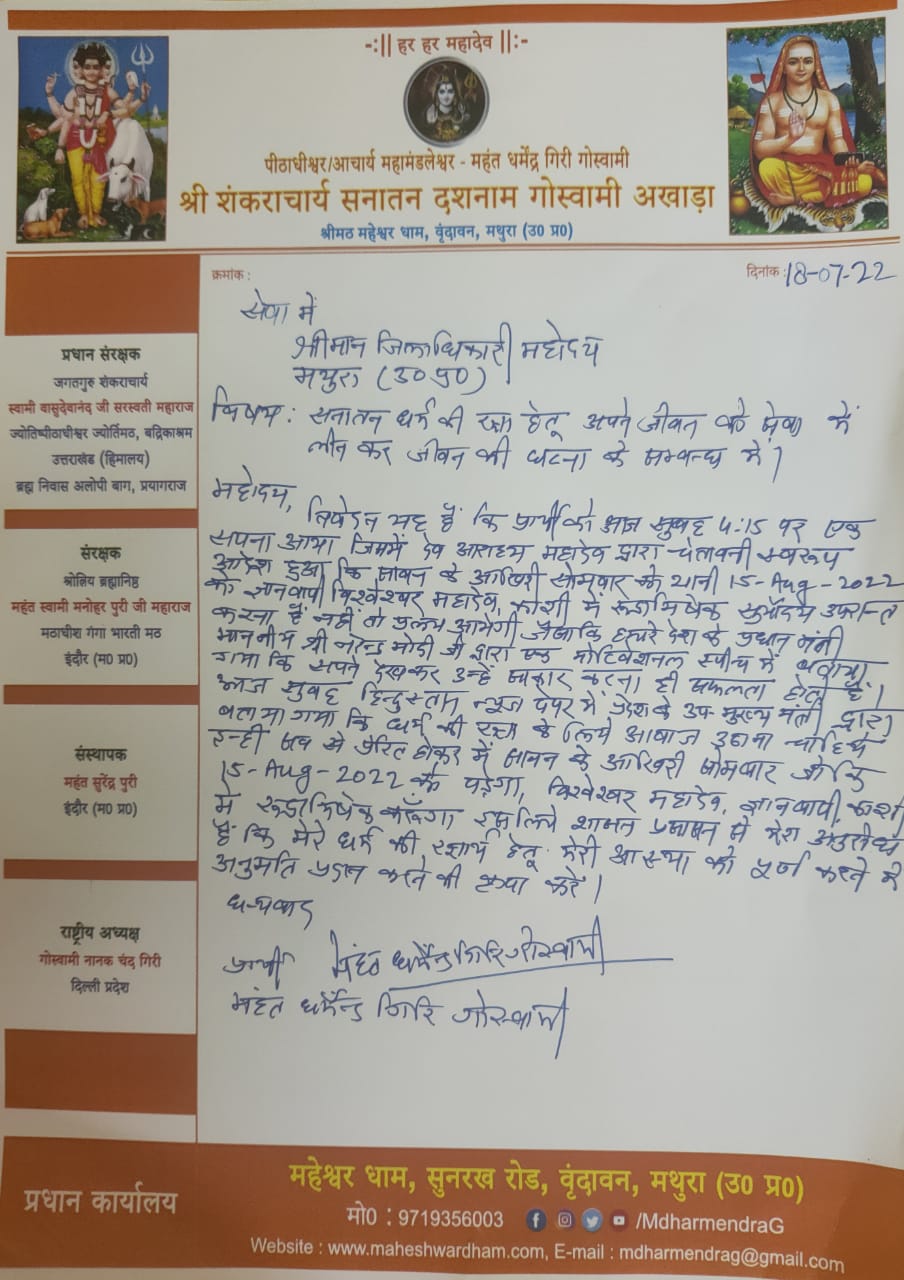 -:|| हर हर महादेव ||:-
पीठाधीश्वर/आचार्य महामंडलेश्वर - महंत धर्मेंद्र गिरी गोस्वामी
श्री शंकराचार्य सनातन दशनाम गोस्वामी अखाड़ा
श्रीमठ महेश्वर धाम, वृंदावन, मथुरा (उ0 प्र0)
क्रमांक :
दिनांक : 18-07-22
प्रधान संरक्षक
जगतगुरु शंकराचार्य
स्वामी वासुदेवानंद जी सरस्वती महाराज
ज्योतिष्पीठाधीश्वर ज्योर्तिमठ, बद्रिकाश्रम
उत्तराखंड (हिमालय)
ब्रह्म निवास अलोपी बाग, प्रयागराज
संरक्षक
श्रोत्रिय ब्रह्मनिष्ठ
महंत स्वामी मनोहर पुरी जी महाराज
मठाधीश गंगा भारती मठ
इंदौर (म0 प्र0)
संस्थापक
महंत सुरेंद्र पुरी
इंदौर (म0 प्र0)
राष्ट्रीय अध्यक्ष
गोस्वामी नानक चंद गिरी
दिल्ली प्रदेश
सेवा में
श्रीमान जिलाधिकारी महोदय
मथुरा (उ0 प्र0)
विषय : सनातन धर्म की रक्षा हेतू अपने जीवन को सेवा में
लीन कर जीवन की घटना के सम्बन्ध में।
महोदय,
निवेदन यह है कि प्रार्थी को आज सुबह 4:15 पर एक
सपना आया जिसमें देव आराध्य महादेव द्वारा चेतावनी स्वरूप
आदेश हुआ कि सावन के आखिरी सोमवार को यानी 15-Aug-2022
को ज्ञानवापी विश्वेश्वर महादेव, काशी में रूद्राभिषेक सूर्योदय उपरान्त
करना है नहीं तो प्रलय आयेगी जैसाकि हमारे देश के प्रधान मंत्री
माननीय श्री नरेन्द्र मोदी जी द्वारा एक मोटिवेशनल स्पीच में बताया
गया कि सपने देखकर उन्हें साकार करना ही सफलता होती है।
आज सुबह हिन्दुस्तान न्यूज पेपर में प्रदेश के उप-मुख्य मंत्री द्वारा
बताया गया कि धर्म की रक्षा के लिये आवाज उठाना चाहिये
इन्ही सब से प्रेरित होकर मैं सावन के आखिरी सोमवार जोकि
15-Aug-2022 को पड़ेगा, विश्वेश्वर महादेव, ज्ञानवापी, काशी
में रूद्राभिषेक करूँगा इसलिये शासन प्रशासन से मेरा अनुरोध
है कि मेरे धर्म की रक्षार्थ हेतू मेरी आस्था को पूर्ण करने में
अनुमति प्रदान करने की कृपा करें।
धन्यवाद
प्रार्थी महंत धर्मेन्द्र गिरि गोस्वामी
महंत धर्मेन्द्र गिरि गोस्वामी
प्रधान कार्यालय
महेश्वर धाम, सुनरख रोड, वृंदावन, मथुरा (उ0 प्र0)
मो0 : 9719356003 /MdharmendraG
Website : www.maheshwardham.com, E-mail : mdharmendrag@gmail.com